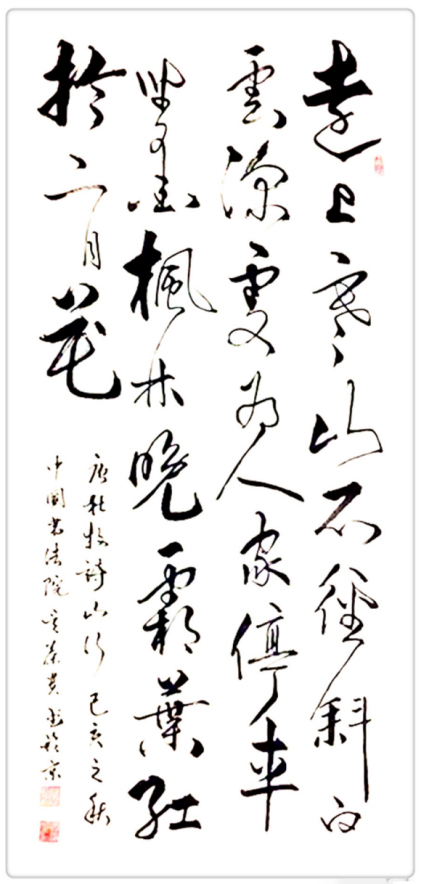 遠上寒山石徑斜白
雲深處為人家停車
坐愛楓林晚霜葉紅
於二月花
唐杜牧詩山行己亥之秋
中國書法院書於京